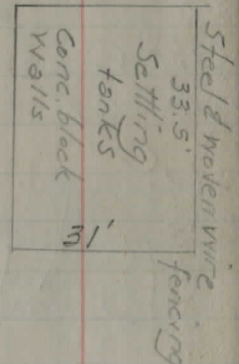 Steel & woven wire fencing
33.5'
Settling
tanks
Conc. block
Walls
31'